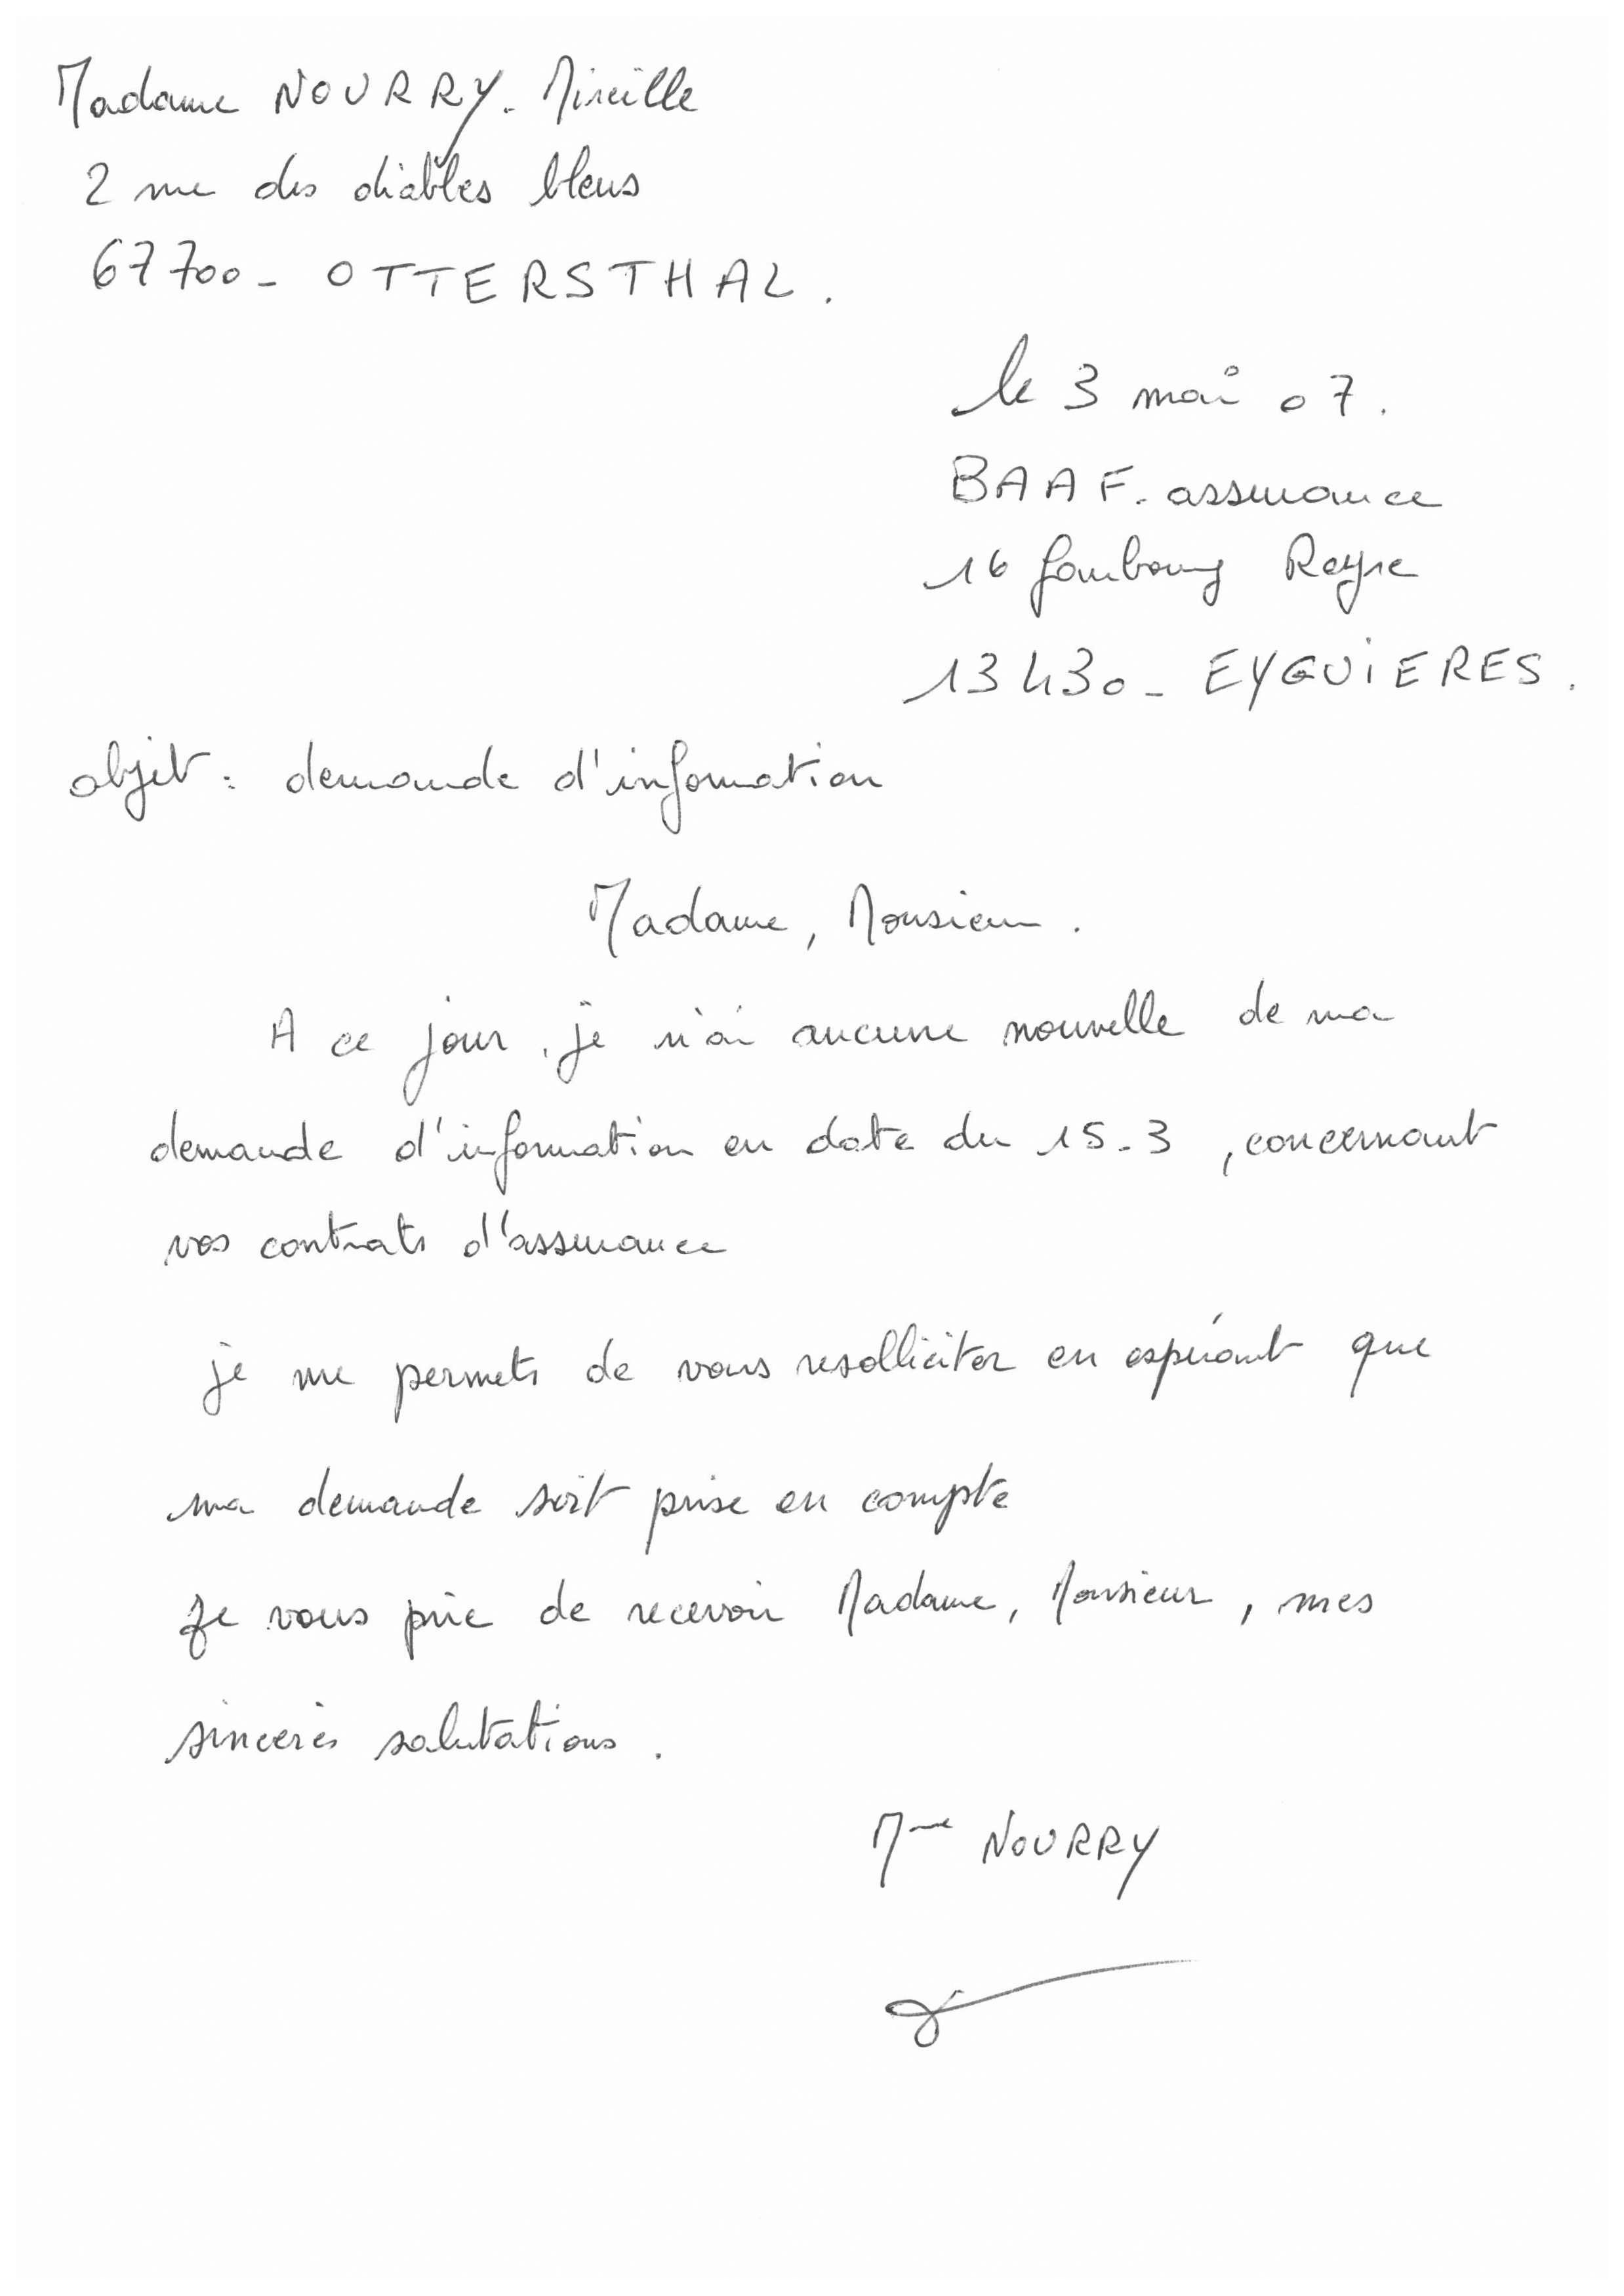 Madame NOURRY. Mireille
2 rue des diables bleus
67700 - OTTERSTHAL.
le 3 mai 07.
BAAF. assurance
16 faubourg Reyre
13430 - EYGUIERES.
objet : demande d'information
Madame, Monsieur.
A ce jour, je n'ai aucune nouvelle de ma
demande d'information en date du 15-3, concernant
vos contrats d'assurance
je me permets de vous resolliciter en espérant que
ma demande soit prise en compte
Je vous prie de recevoir Madame, Monsieur, mes
sincères salutations.
Mme NOURRY